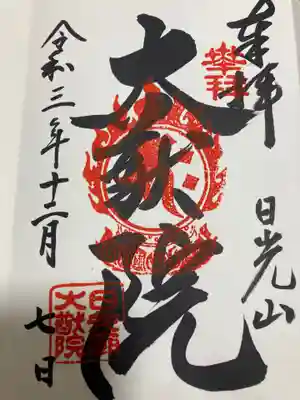 奉拝
日光山
大猷院
令和三年十二月
七日
奉拝
日光山
大猷院